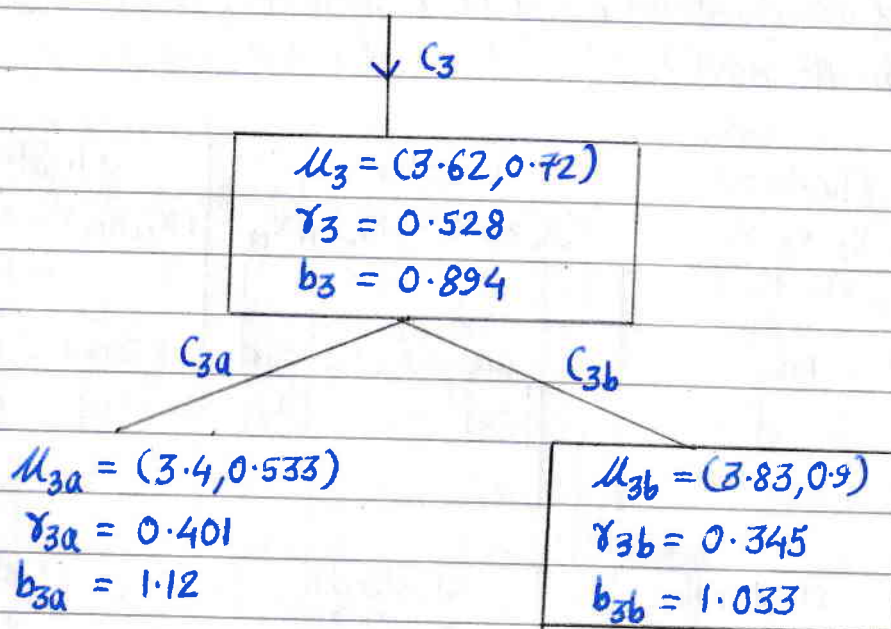 C3
μ3 = (3.62, 0.72)
γ3 = 0.528
b3 = 0.894
C3a
C3b
μ3a = (3.4, 0.533)
γ3a = 0.401
b3a = 1.12
μ3b = (3.83, 0.9)
γ3b = 0.345
b3b = 1.033